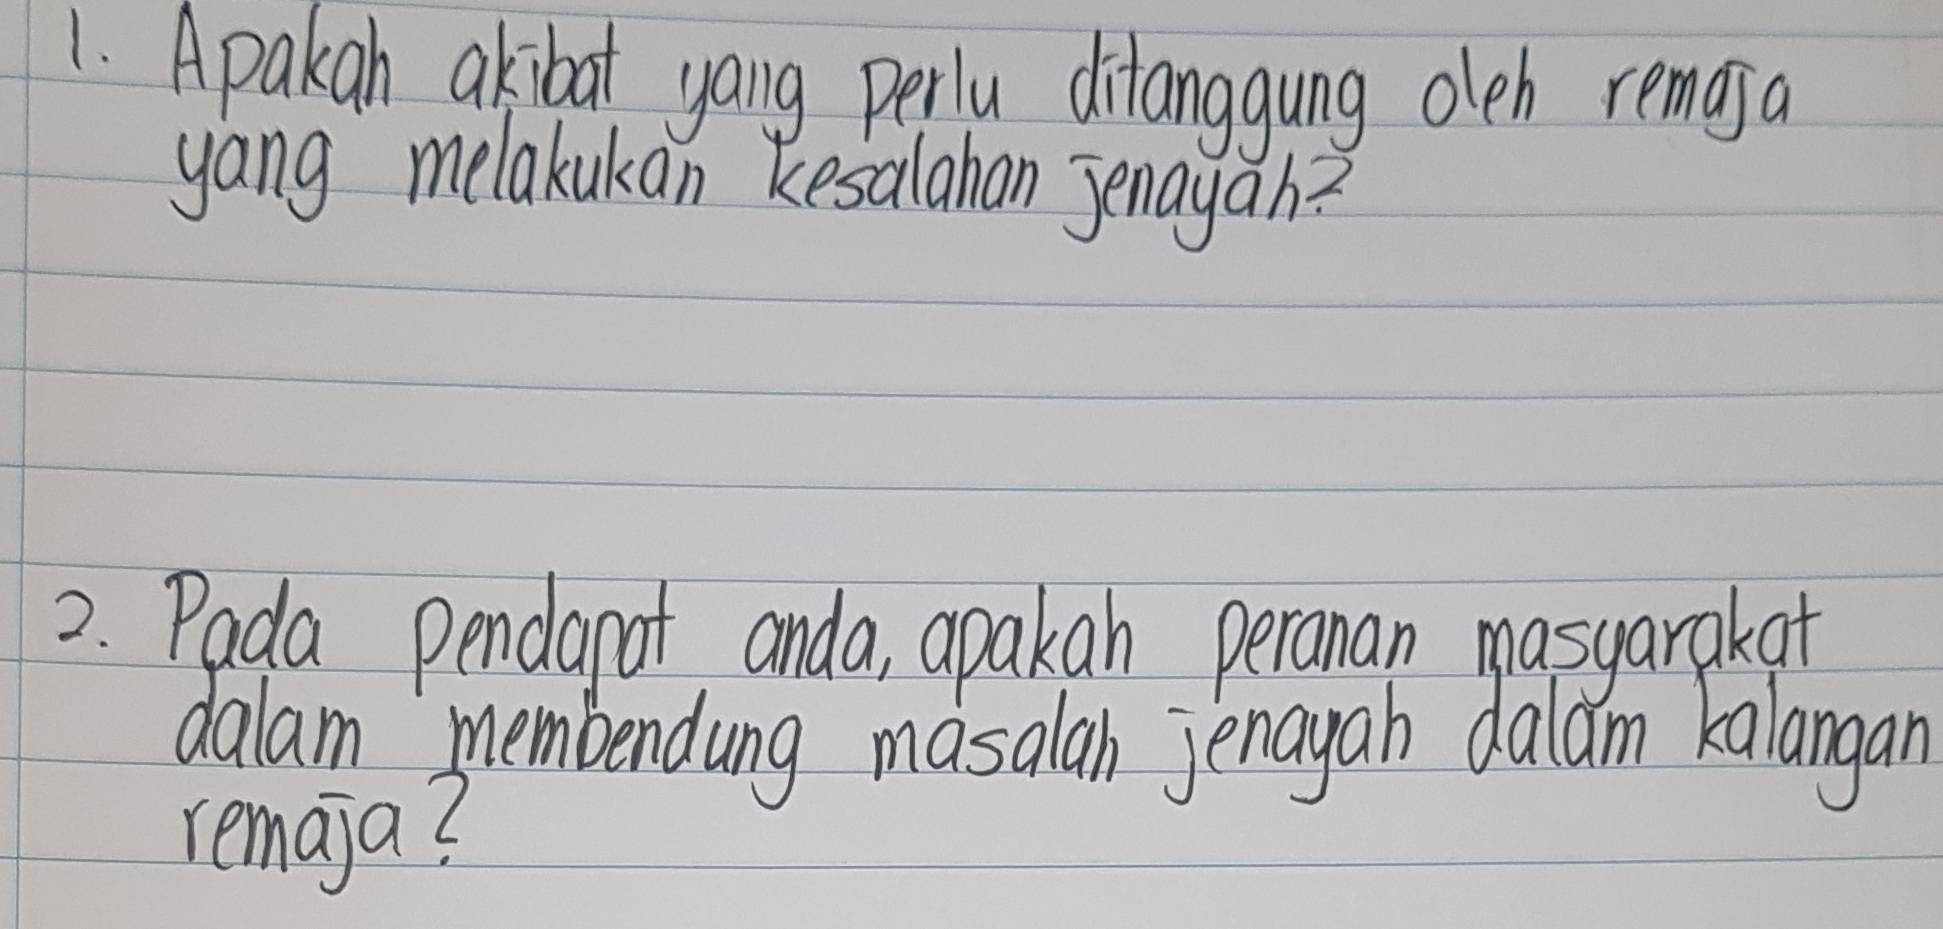 1. Apakah akibat yang perlu ditanggung oleh remaja
yang melakukan kesalahan jenayah?
2. Pada pendapat anda, apakah peranan masyarakat
dalam membendung masalah jenayah dalam kalangan
remaja?